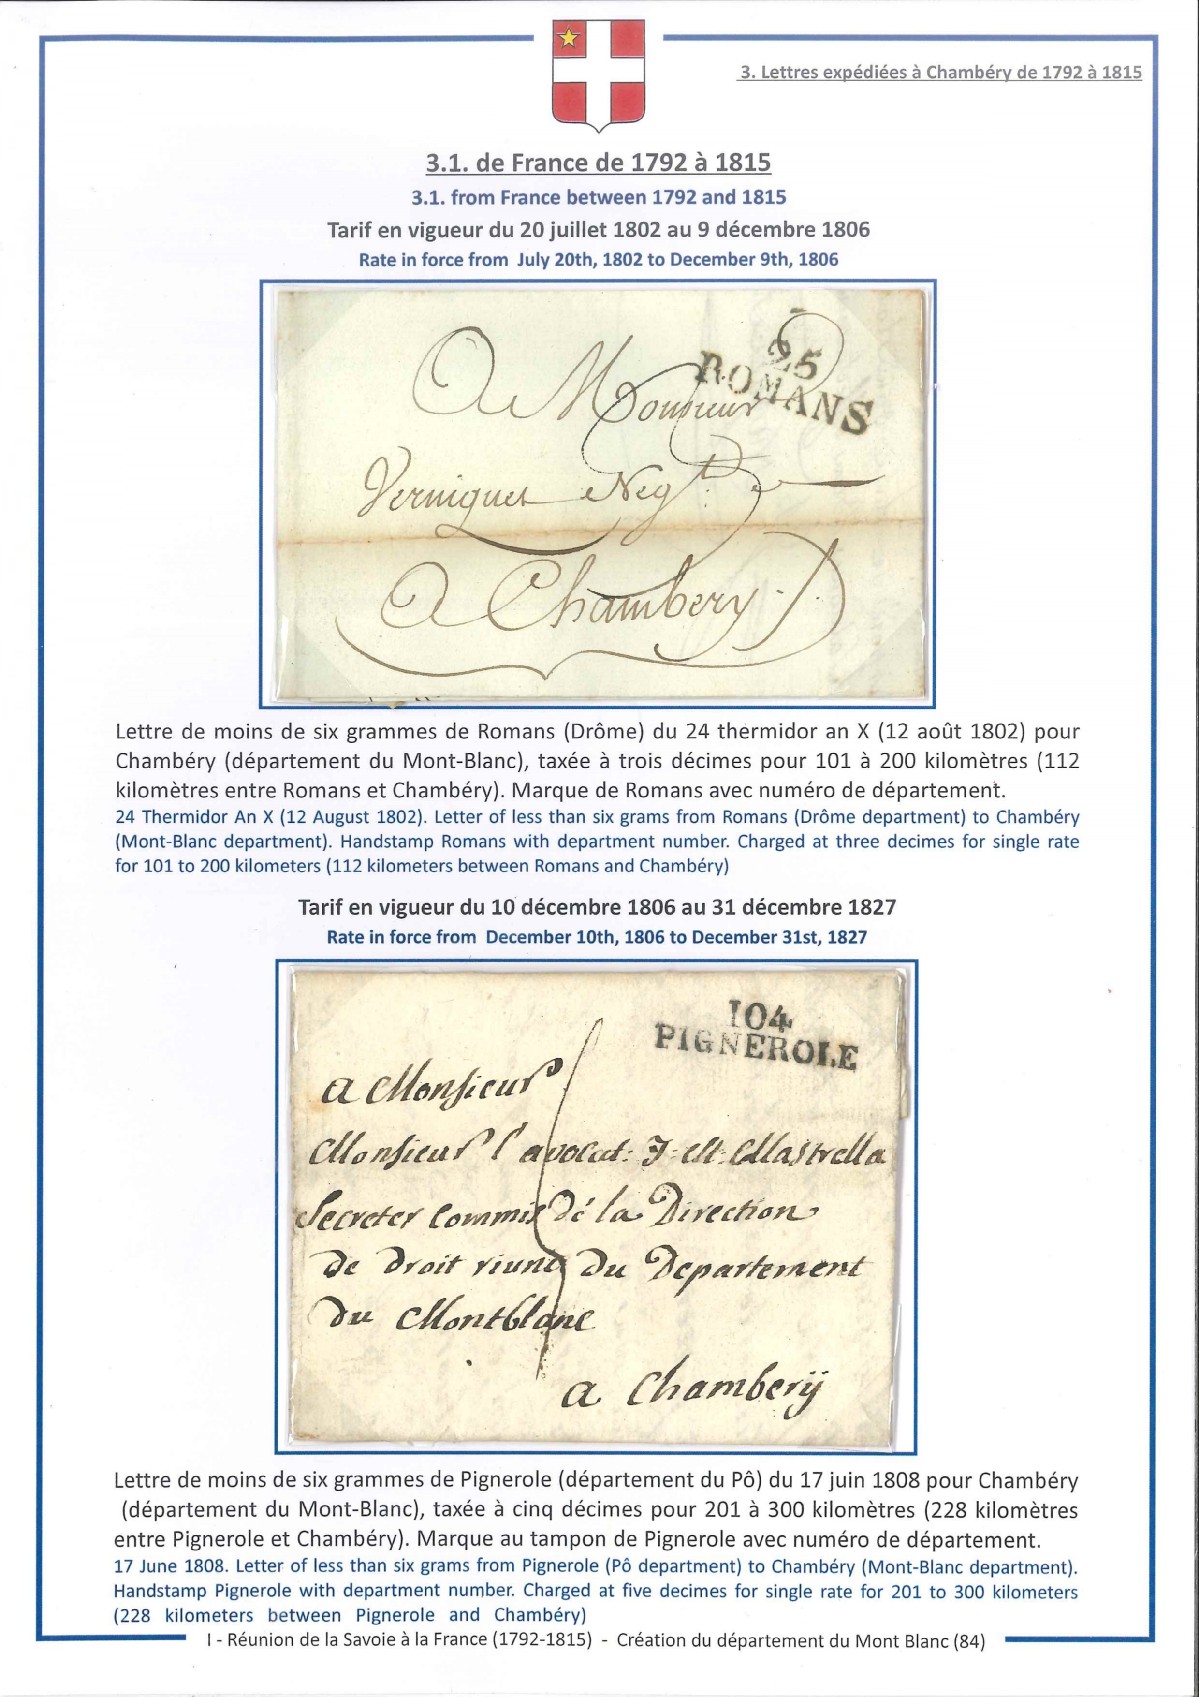 3. Lettres expédiées à Chambéry de 1792 à 1815
3.1. de France de 1792 à 1815
3.1. from France between 1792 and 1815
Tarif en vigueur du 20 juillet 1802 au 9 décembre 1806
Rate in force from July 20th, 1802 to December 9th, 1806
25
ROMANS
A Monsieur
Verniquet Negt
A Chambery
Lettre de moins de six grammes de Romans (Drôme) du 24 thermidor an X (12 août 1802) pour
Chambéry (département du Mont-Blanc), taxée à trois décimes pour 101 à 200 kilomètres (112
kilomètres entre Romans et Chambéry). Marque de Romans avec numéro de département.
24 Thermidor An X (12 August 1802). Letter of less than six grams from Romans (Drôme department) to Chambéry
(Mont-Blanc department). Handstamp Romans with department number. Charged at three decimes for single rate
for 101 to 200 kilometers (112 kilometers between Romans and Chambéry)
Tarif en vigueur du 10 décembre 1806 au 31 décembre 1827
Rate in force from December 10th, 1806 to December 31st, 1827
104
PIGNEROLE
a Monsieur
Monsieur l'avocat J. M. Mastrella
Secreter Commis dé la Direction
de droit riuni du Departement
du Montblanc
a Chamberÿ
Lettre de moins de six grammes de Pignerole (département du Pô) du 17 juin 1808 pour Chambéry
(département du Mont-Blanc), taxée à cinq décimes pour 201 à 300 kilomètres (228 kilomètres
entre Pignerole et Chambéry). Marque au tampon de Pignerole avec numéro de département.
17 June 1808. Letter of less than six grams from Pignerole (Pô department) to Chambéry (Mont-Blanc department).
Handstamp Pignerole with department number. Charged at five decimes for single rate for 201 to 300 kilometers
(228 kilometers between Pignerole and Chambéry)
I - Réunion de la Savoie à la France (1792-1815) - Création du département du Mont Blanc (84)